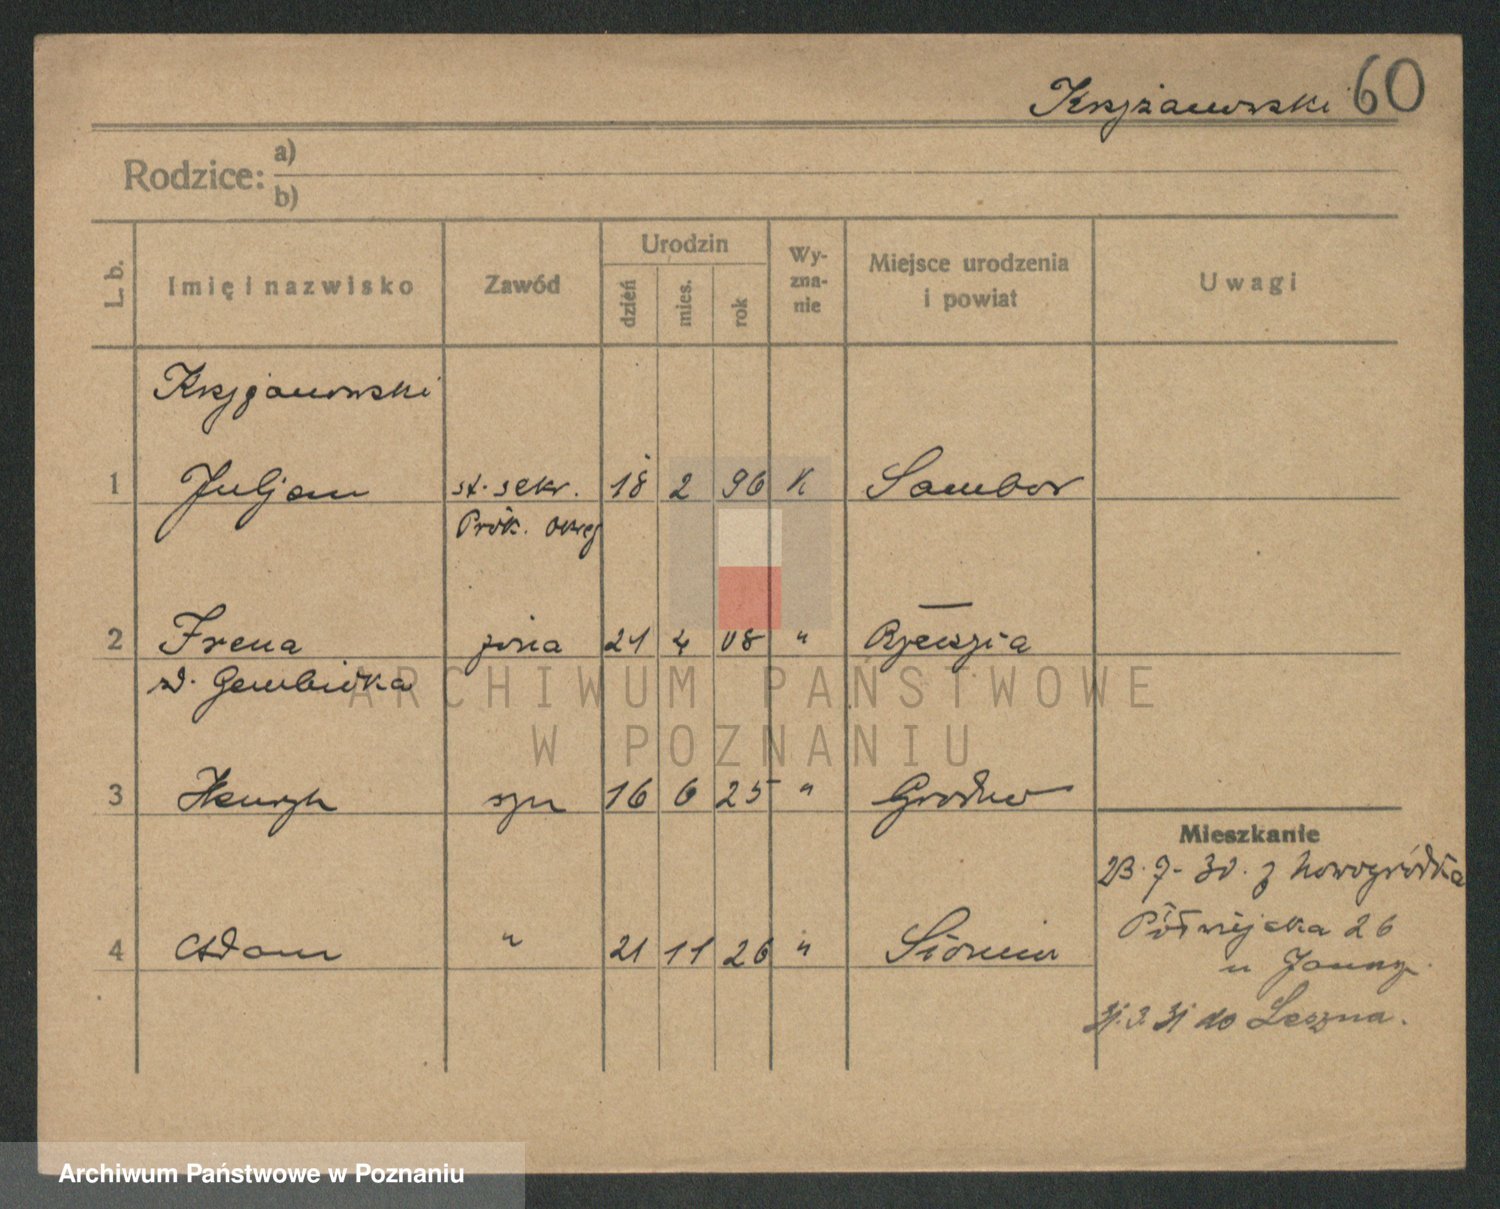 Krzyżanowski 60
Rodzice: a)
b)
L. b. Imię i nazwisko Zawód Urodzin dzień mies. rok Wy-zna-nie Miejsce urodzenia i powiat Uwagi
Krzyżanowski
1 Juljan st. sekr. 18 2 96 K Sambor
Prok. okręg
2 Irena żona 21 4 08 " Rzeszia
d. Gembicka
ARCHIWUM PAŃSTWOWE
W POZNANIU
3 Henryk syn 16 6 25 " Grodno
Mieszkanie
23. 7. 30. z Nowogródka
4 Adam " 21 11 26 " Słonim
Półwiejska 26
u
31. 3. 31 do Leszna.
Archiwum Państwowe w Poznaniu